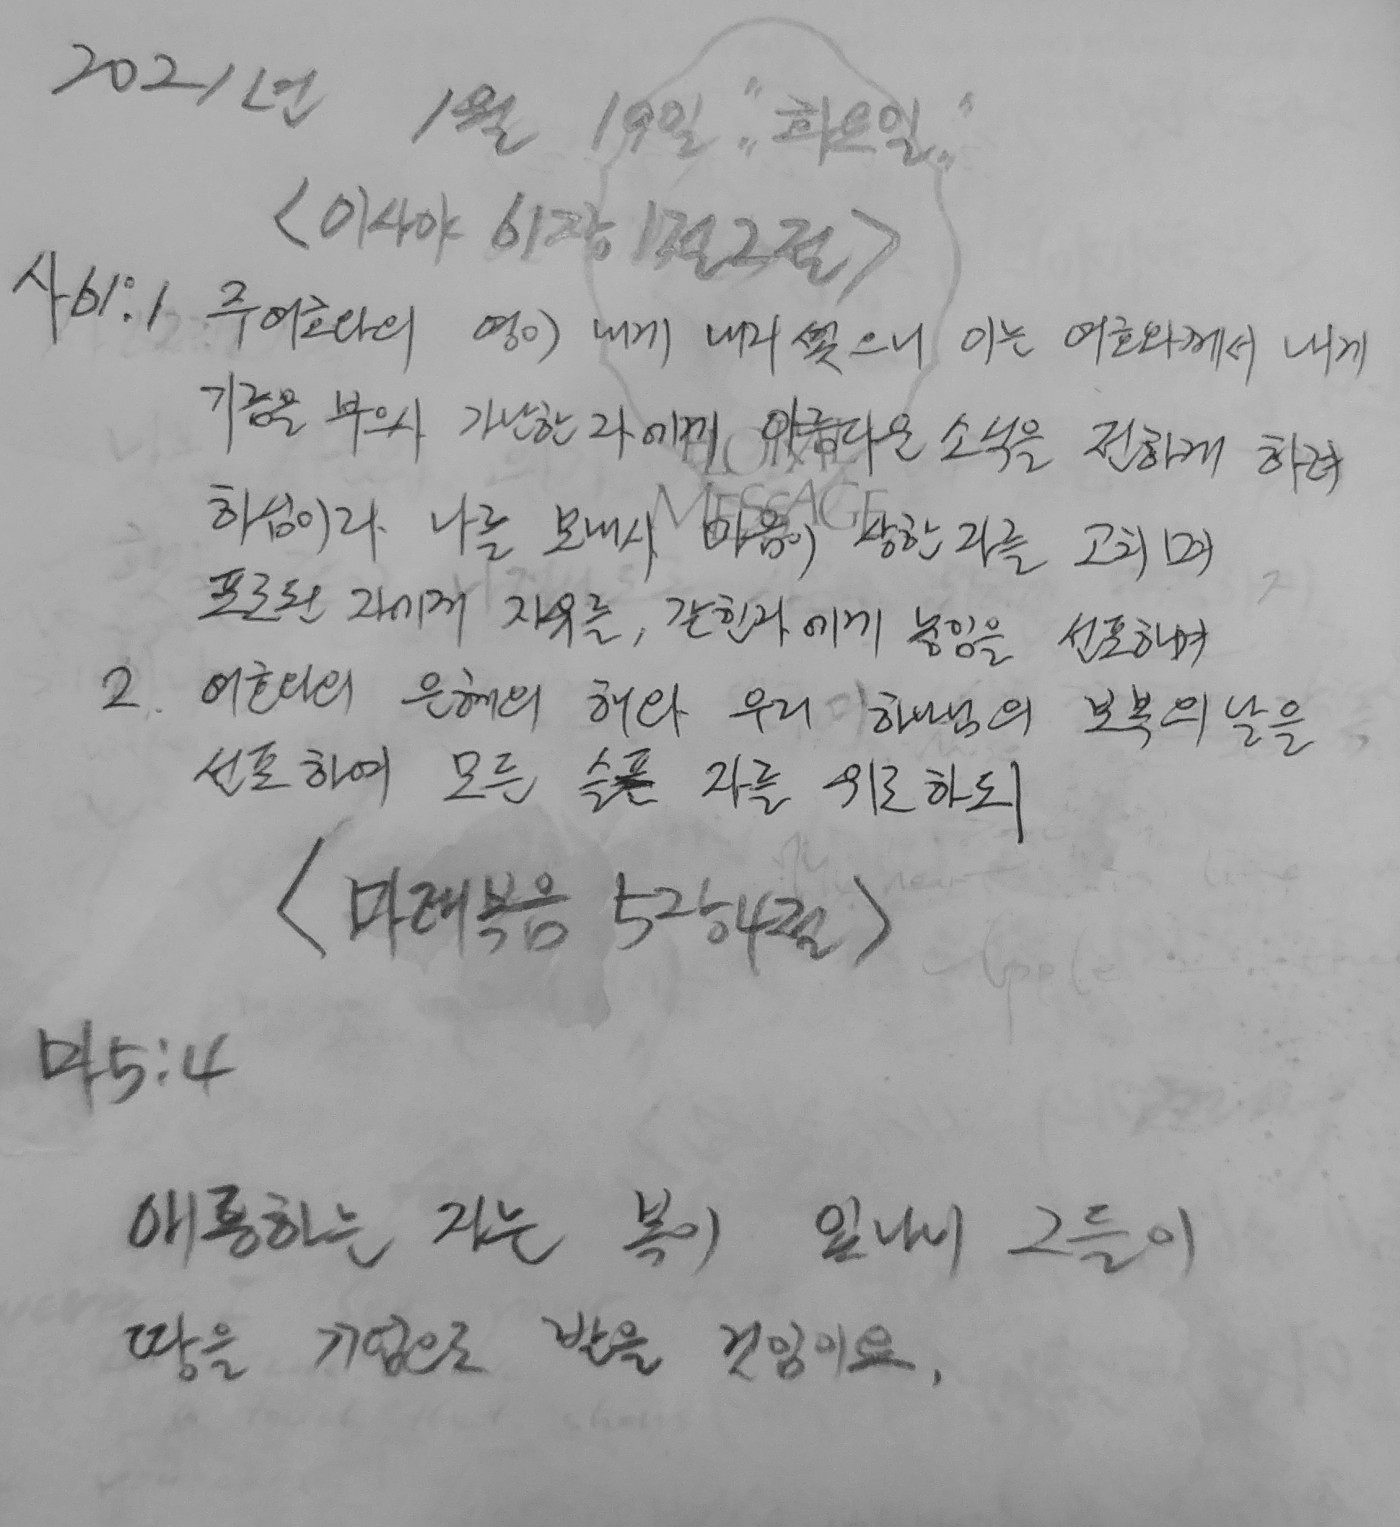 2021년 1월 19일 "화요일"
<이사야 61장 1절2절>
사61:1 주여호와의 영이 내게 내리셨으니 이는 여호와께서 내게
기름을 부으사 가난한 자에게 아름다운 소식을 전하게 하려
하심이라 나를 보내사 마음이 상한 자를 고치며
포로된 자에게 자유를, 갇힌자에게 놓임을 선포하며
2. 여호와의 은혜의 해와 우리 하나님의 보복의 날을
선포하여 모든 슬픈 자를 위로하되
FLORAL
MESSAGE
<마태복음 5장4절>
마5:4
애통하는 자는 복이 있나니 그들이
땅을 기업으로 받을 것임이요.